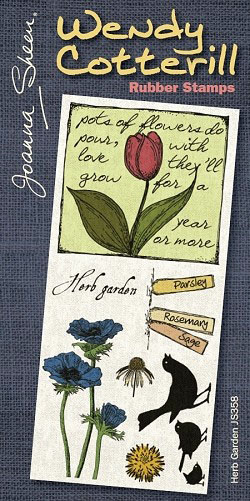 Wendy
Cotterill
Rubber Stamps
Joanna Sheen
pots of flowers do
pour, with
love they'll
grow for a
year
or more
Herb garden
Parsley
Rosemary
Sage
Herb Garden JS358